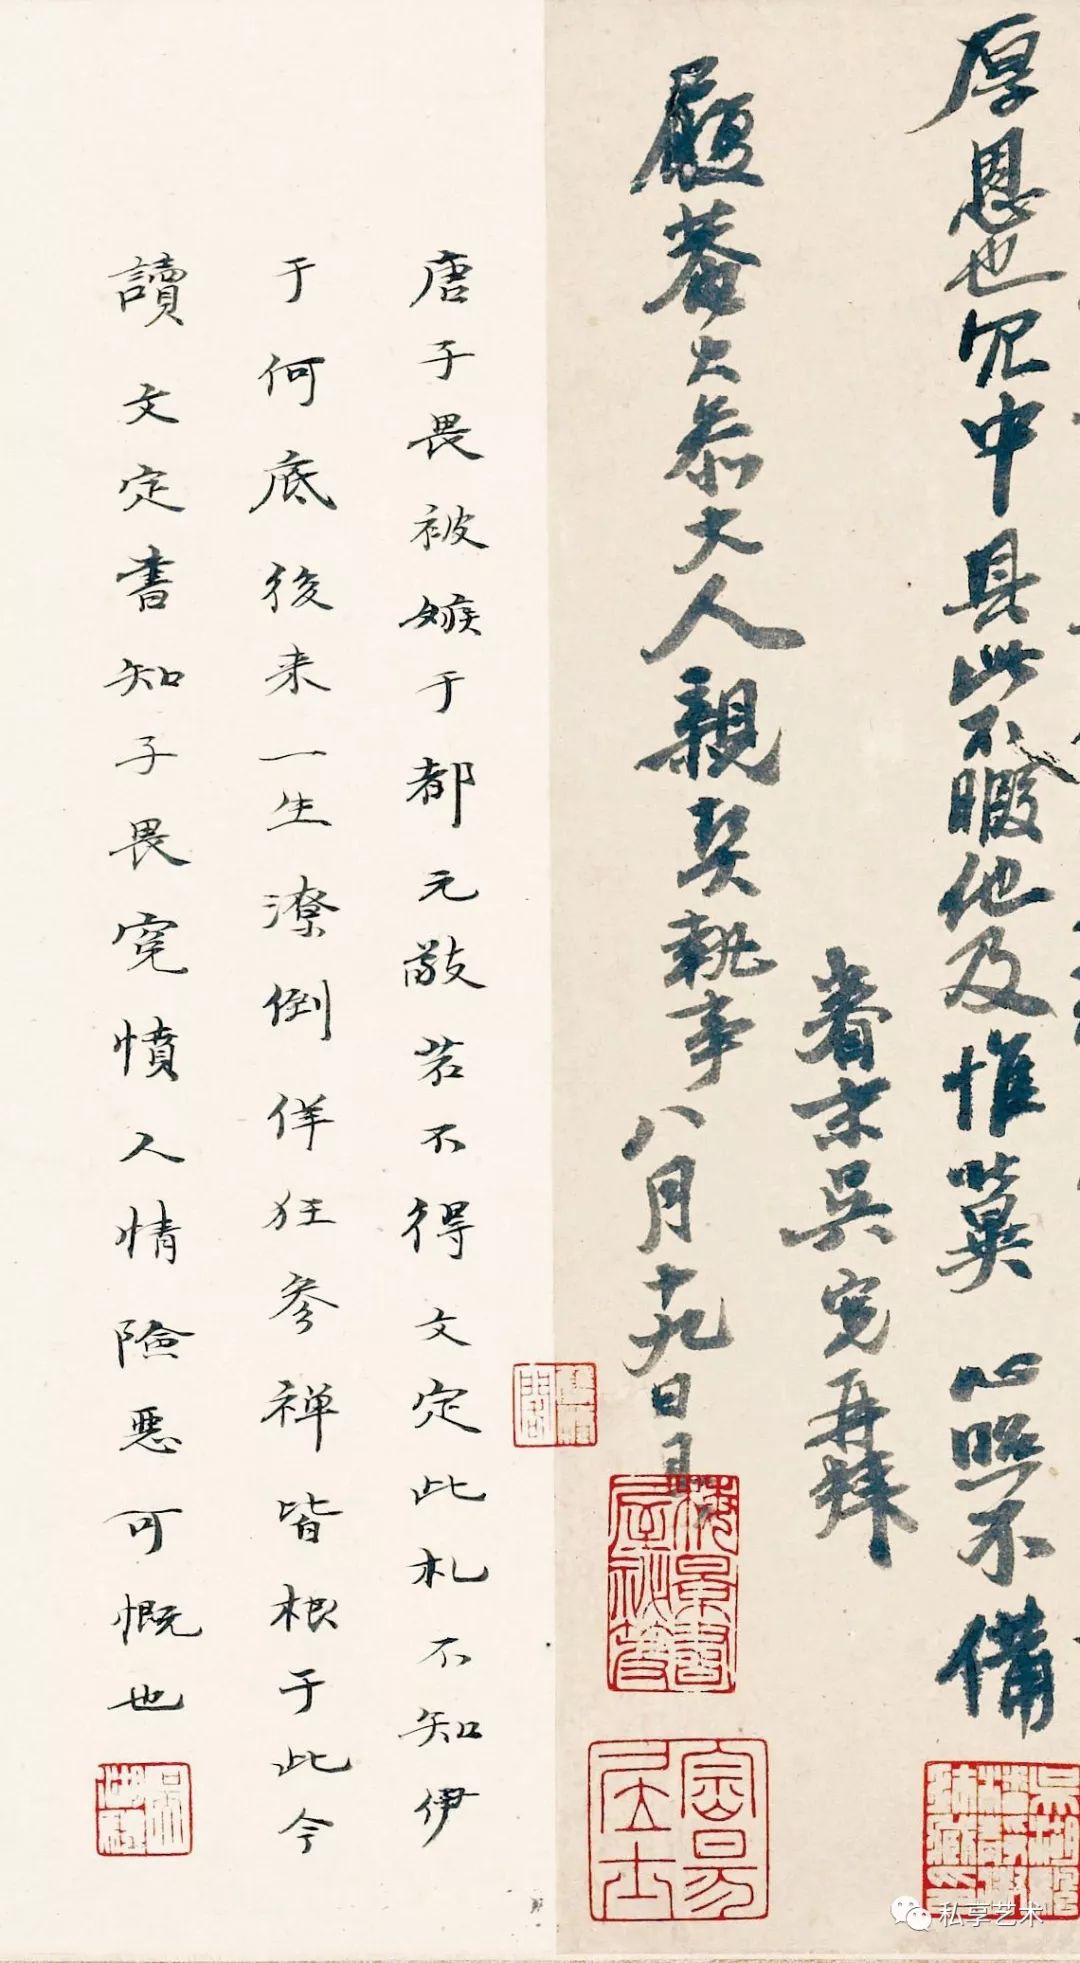 厚恩也冗中具此不暇他及惟冀
心照不備
眷末吳寬再拜
履菴大參大人親契執事八月十九日具
唐子畏被嫉于都元敬若不得文定此札不知伊
于何底後来一生潦倒佯狂參禅皆根于此今
讀文定書知子畏寃憤人情險惡可慨也
梅景書屋秘笈
密昜居士
私享艺术